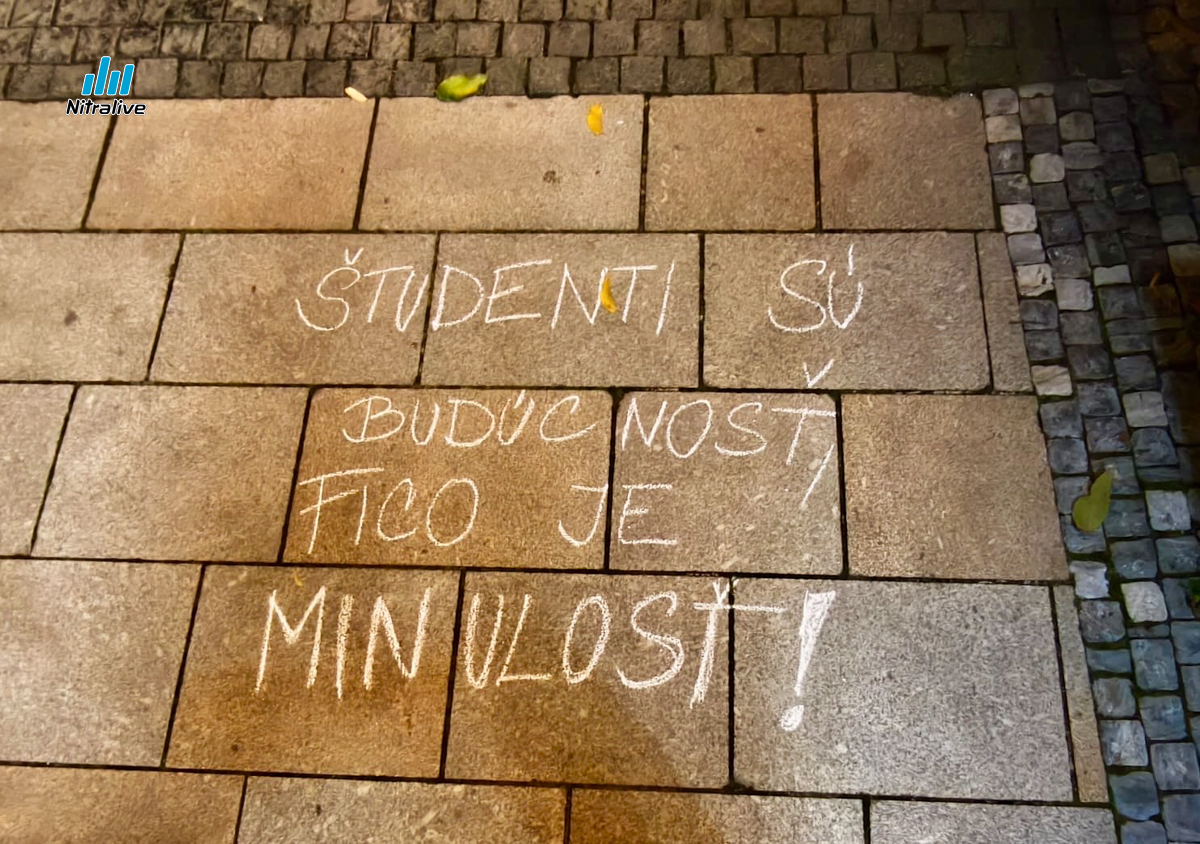 Nitralive
ŠTUDENTI SÚ
BUDÚCNOSŤ,
FICO JE
MINULOSŤ!